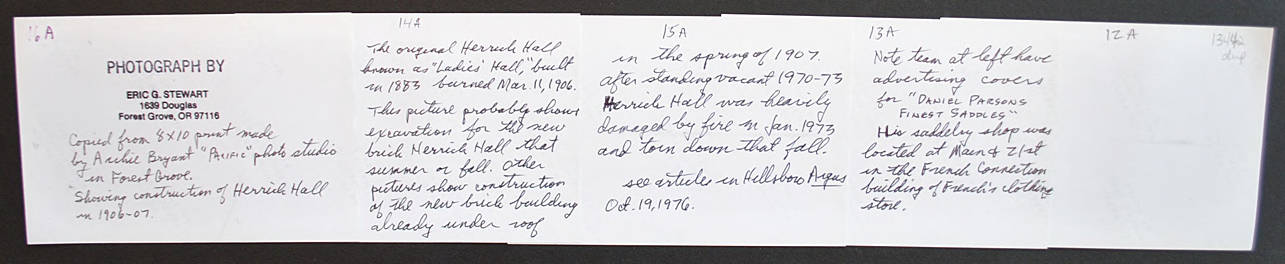 16A
PHOTOGRAPH BY
ERIC G. STEWART
1639 Douglas
Forest Grove, OR 97116
Copied from 8x10 print made
by Archie Bryant "PACIFIC" photo studio
in Forest Grove.
Showing construction of Herrick Hall
in 1906-07.
14A
The original Herrick Hall
known as "Ladies' Hall," built
in 1883 burned Mar. 11, 1906.
This picture probably shows
excavation for the new
brick Herrick Hall that
summer or fall. Other
pictures show construction
of the new brick building
already under roof
15A
in the spring of 1907.
After standing vacant 1970-73
Herrick Hall was heavily
damaged by fire in Jan. 1973
and torn down that fall.
see articles in Hillsboro Argus
Oct. 19, 1976.
13A
Note team at left have
advertising covers
for "DANIEL PARSONS
FINEST SADDLES"
His saddelry shop was
located at Main & 21st
in the French Connection
building of French's clothing
store.
12A